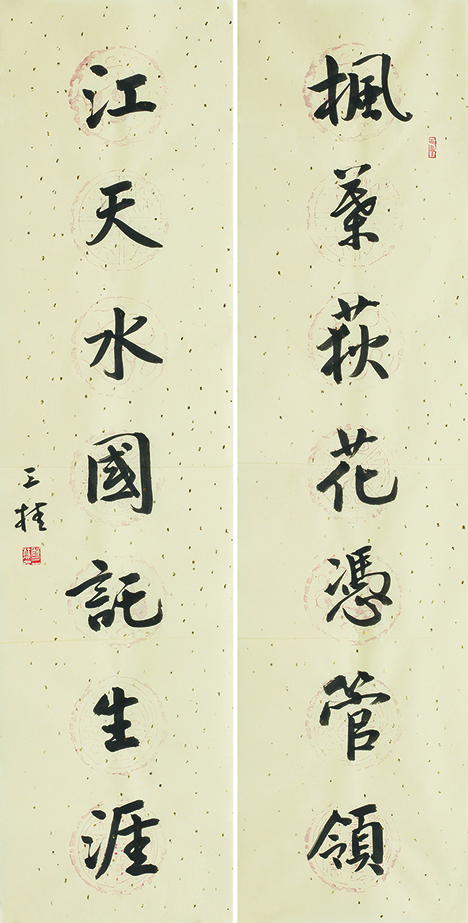 楓葉荻花憑管領
江天水國託生涯